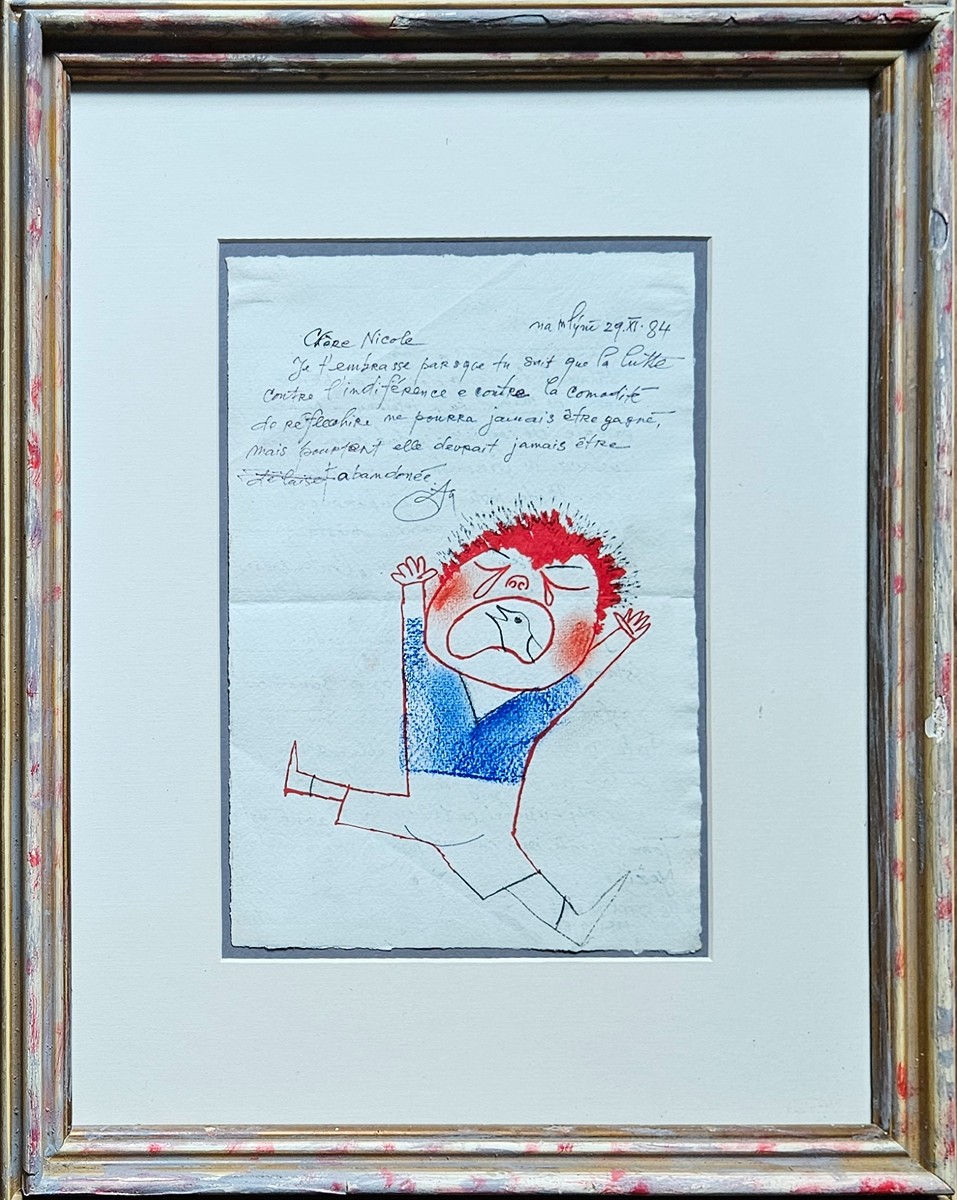 na mlýně 29.XI.84
Chère Nicole
Je t'embrasse parsque tu sait que la lutte
contre l'indiférence e contre la comodité
de réflechire ne pourra jamais être gagné,
mais pourtant elle devrait jamais être
abandonée